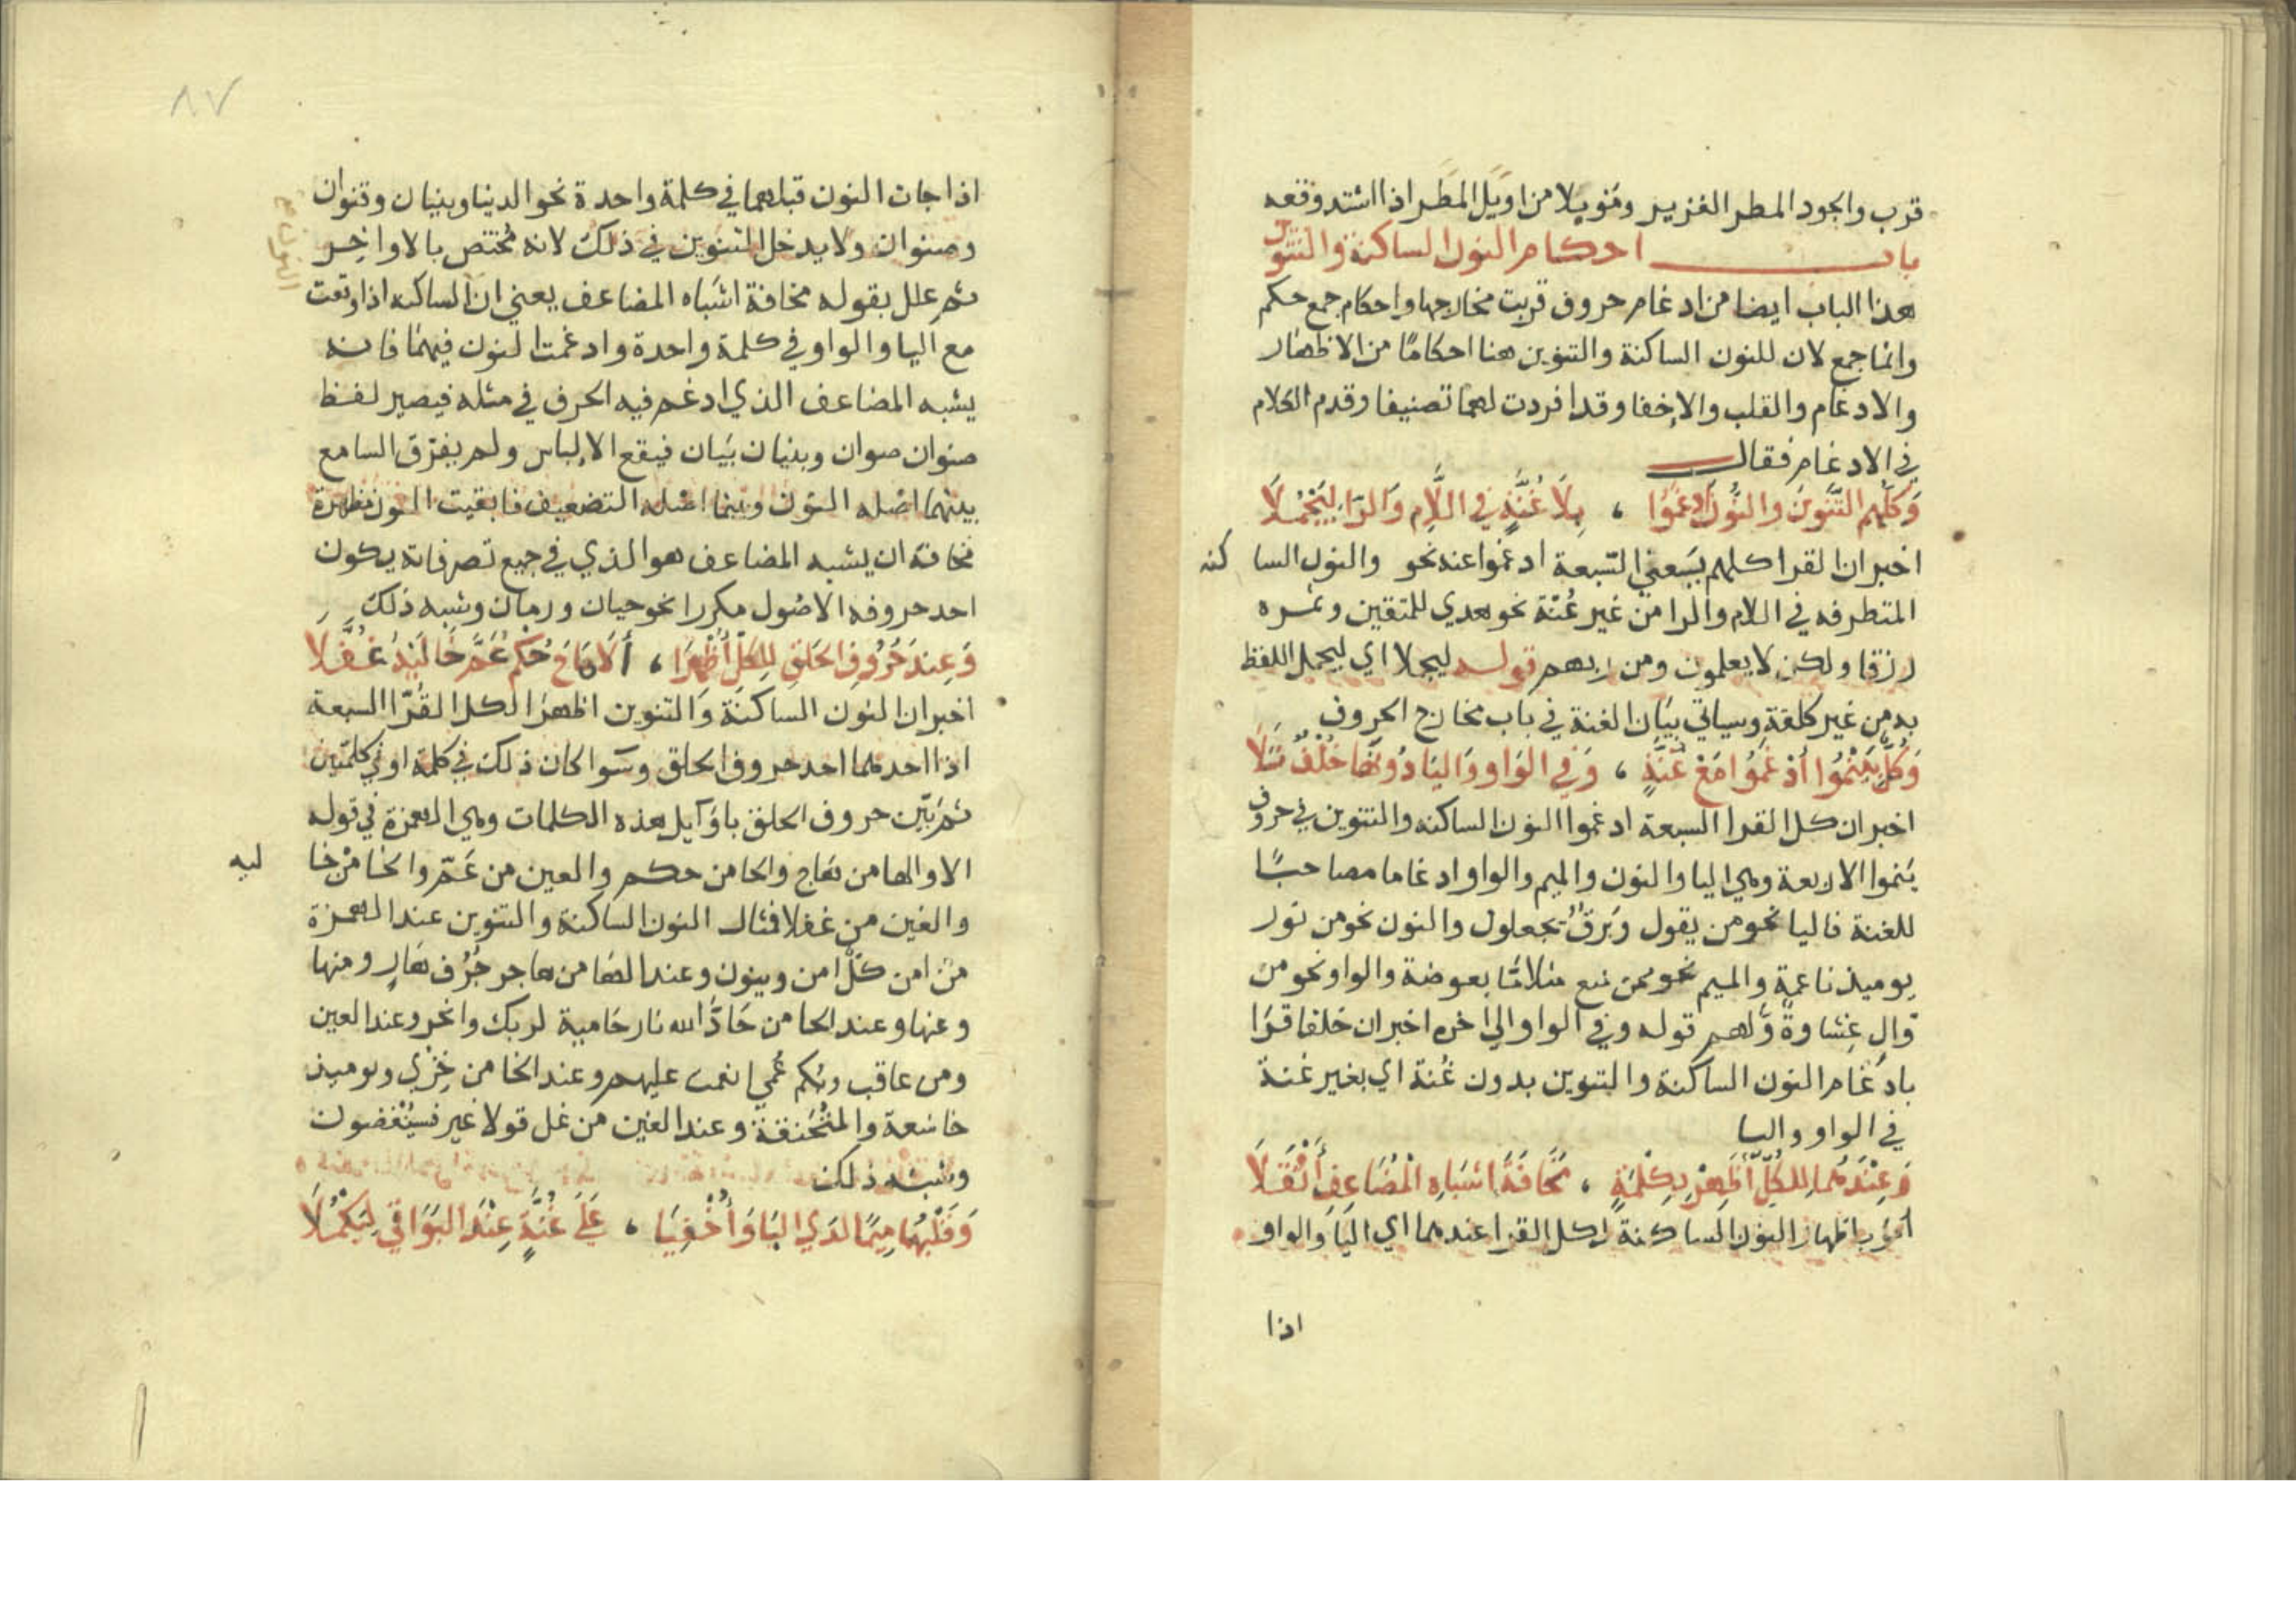 قرب والجود المطر الغزير وموبلا من اوبل المطر اذا اشتد وقعه
باب احكام النون الساكنة والتنوين
هذا الباب ايضا من ادغام حروف قربت مخارجها واحكام جمع حكم
وانما جمع لان للنون الساكنة والتنوين هنا احكامًا من الاظهار
والادغام والقلب والاخفا وقد افردت لهما تصنيفا وقدم الكلام
في الادغام فقال
وَكلُّهم التَّنوينَ والنُّونَ ادغَمُوا ، بِلَا غُنَّةٍ في اللَّامِ وَالرَّا لِيَجْمُلَا
اخبر ان القرا كلهم يَعني السّبعة ادغموا عند نحو والنون الساكنه
المتطرفه في اللام والرا من غير غُنّة نحو هدي للمتقين وثمره
رزقا ولكن لا يعلمون ومن ربهم قوله ليجملا اي ليجمل اللفظ
به من غير كلفة وسياتي بيَان الغنة في باب مخارج الحروف
وَكُلٌّ بِيَنْمُوا أدْغَمُوا مَعْ غُنَّةٍ ، وَفي الوَاوِ وَاليَا دُونَهَا خَلَفٌ تَلَا
اخبر ان كل القرا السبعة ادغموا النون الساكنه والتنوين في حروف
يَنموا الاربعة وهي اليا والنون والميم والواو ادغاما مصاحبًا
للغنة فاليا نحو من يقول وبَرقٌ يجعلون والنون نحو من نور
يوميذ ناعمة والميم نحو ممن منع مثلا مَّا بعوضة والواو نحو من
وَّالٍ غِشاوةٌ وَّلهم قوله وفي الواو الي اخره اخبر ان خلفا قرَا
بادْغام النون الساكنة والتنوين بدون غُنة اي بغير غنة
في الواو واليا
وَعِنْدَهُمَا لِلكُلِّ أَظْهِرْ بِكِلْمَةٍ ، مَخَافَةَ اشبَاهِ المُضَاعِفِ أَثْقَلَا
أمَر باظهار النون الساكنة لكل القرا عندهما اي اليَا والواو
اذا
٨٧
اذا جات النون قبلهما في كلمة واحدة نحو الدنيا وبنيان وقنوان
وصنوان ولا يدخل التنوين في ذلك لانه مُختص بالاواخِر
ثم علل بقوله مخافة اشباه المضاعف يعني ان الساكنه اذا وقعت
مع اليا والواو في كلمة واحدة وادغمت النون فيهما فانه
يشبه المضاعف الذي ادغم فيه الحرف في مثله فيصير لفظ
صنوان صوان وبنيان بيَان فيقع الالباس ولم يفرّق السامع
بينهما اصْله النون وبينما اصْله التضعيف فابقيت النون مظهرة
مخافة ان يشبه المضاعف هو الذي في جميع تصرفاته يكون
احد حروفه الاصُول مكررا نحو حيان ورمان وشبه ذلك
وَعِندَ حُرُوفِ الحَلقِ لِلكُلِّ أُظْهِرَا ، أَلَا هَاجَ حُكمٌ عَمَّ خَالِيَهِ غُفَّلَا
اخبر ان النون الساكنَة وَالتنوين اظهرَا لكل القُرّا السبعة
اذا احدهما احد حروف الحلق وسَوا كان ذلك في كلمة او في كلمتين
ثم بَيّن حروف الحلق باوَايل هذه الكلمات وهي الهمزة في قوله
الا والها من هَاج والحا من حكم والعين من عَمّ والخا من خا ليه
والغين من غفلا فمثال النون الساكنة والتنوين عند الهمزة
منْ امن كلٌّ امن وينون وعند الها من هاجر جُرُف هَارٍ ومنها
وعنها وعند الحا من حَادَّ الله نار حَامية لربك وانحر وعند العين
ومن عاقب وبُكم عُمي انعمت عليهم وعند الخا من خِزْي ويوميذ
خاشعة والمُنْخَنقة وعند الغين من غل قولا غير فسيُنْغضون
وشبه ذلك
وَقَلْبُهُمَا مِيمًا لدَي البَا وَأُخْفِيَا ، عَلَى غُنَّةٍ عِنْدَ البَوَاقي لِيَكْمُلَا